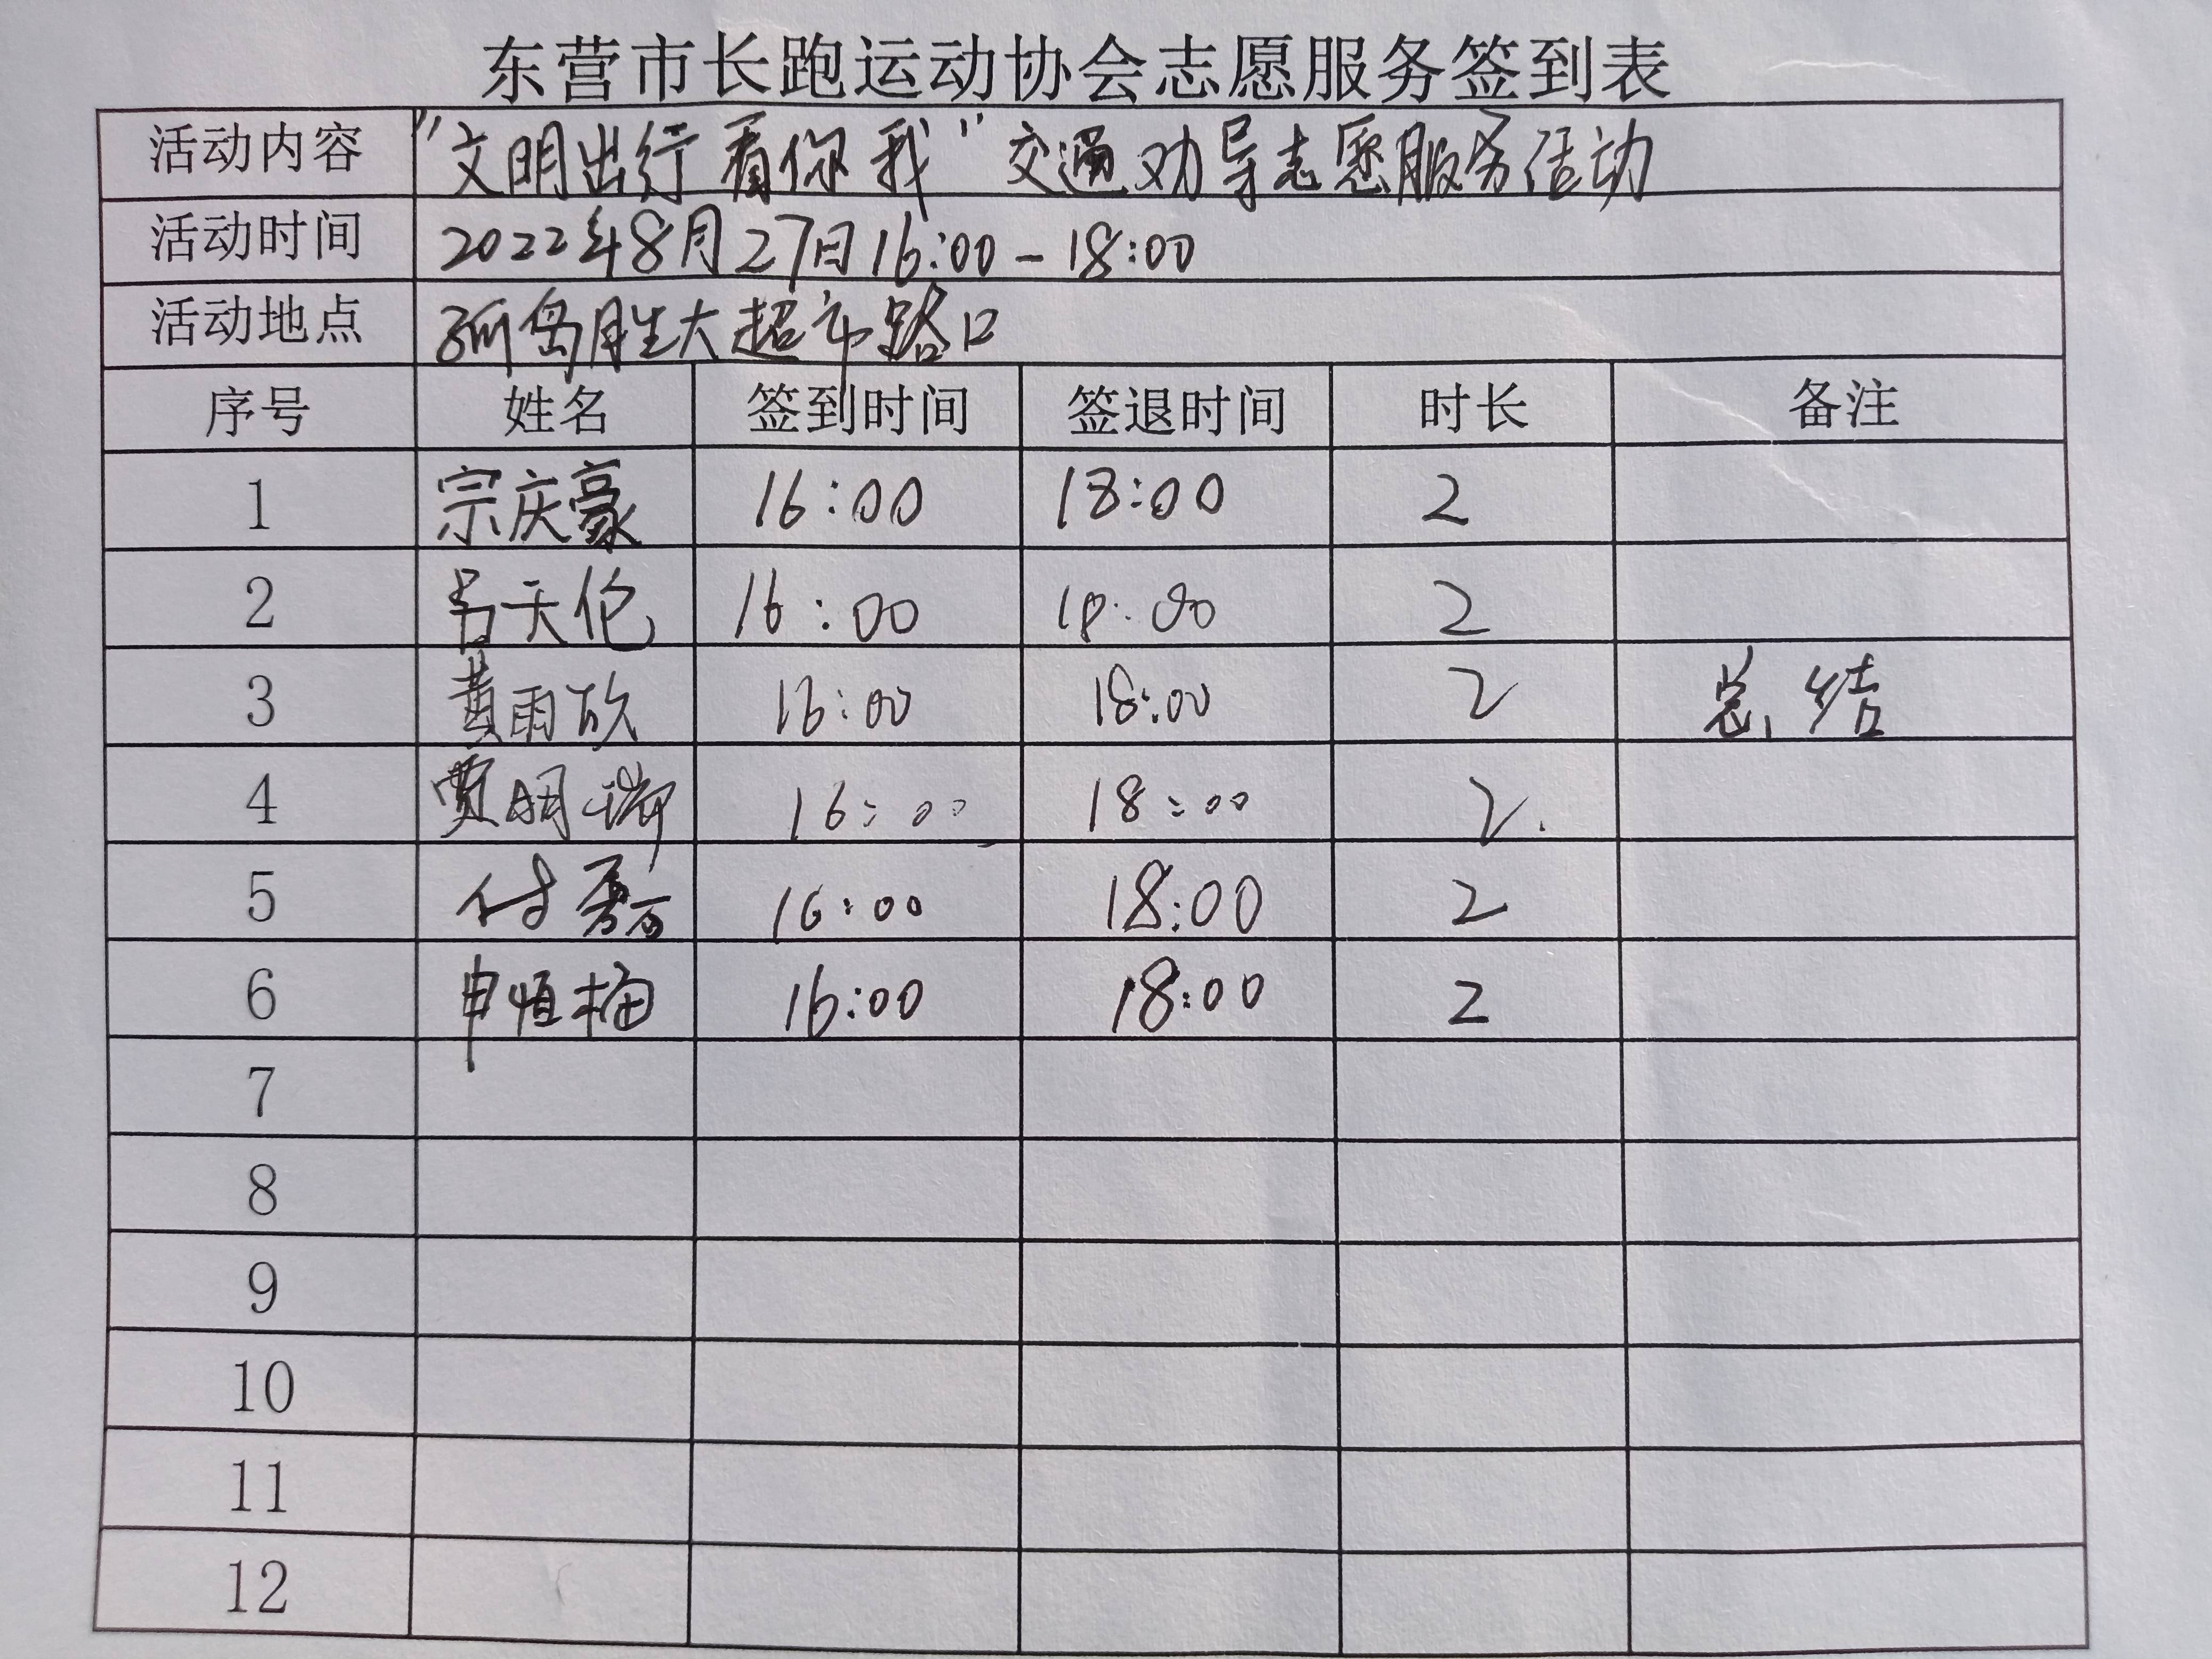 东营市长跑运动协会志愿服务签到表
活动内容 "文明出行 看你我" 交通劝导志愿服务活动
活动时间 2022年8月27日16:00-18:00
活动地点 孤岛胜大超市路口
序号 姓名 签到时间 签退时间 时长 备注
1 宗庆豪 16:00 18:00 2
2 吕天伦 16:00 18:00 2
3 黄雨欣 16:00 18:00 2 总结
4 贾明瑞 16:00 18:00 2.
5 付 16:00 18:00 2
6 申恒梅 16:00 18:00 2
7
8
9
10
11
12